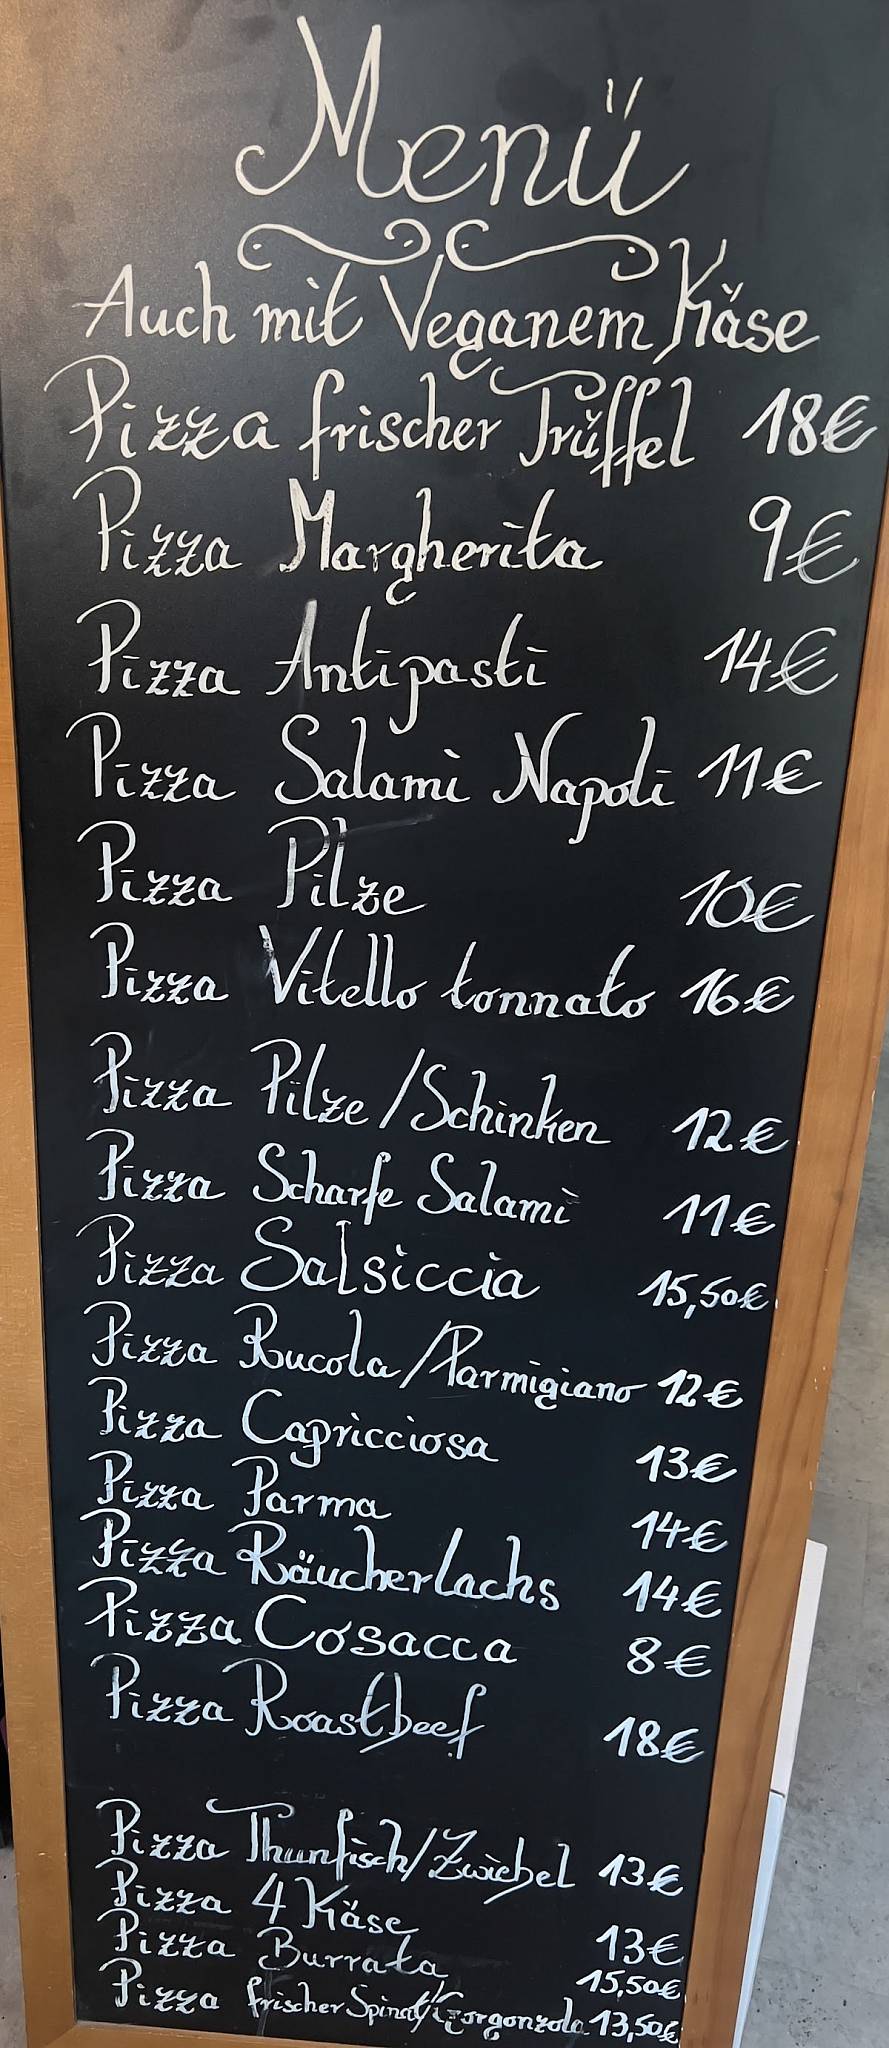 Menü
Auch mit Veganem Käse
Pizza frischer Trüffel 18€
Pizza Margherita 9€
Pizza Antipasti 14€
Pizza Salami Napoli 11€
Pizza Pilze 10€
Pizza Vitello tonnato 16€
Pizza Pilze/Schinken 12€
Pizza Scharfe Salami 11€
Pizza Salsiccia 15,50€
Pizza Rucola/Parmigiano 12€
Pizza Capricciosa 13€
Pizza Parma 14€
Pizza Räucherlachs 14€
Pizza Cosacca 8€
Pizza Roastbeef 18€
Pizza Thunfisch/Zwiebel 13€
Pizza 4 Käse 13€
Pizza Burrata 15,50€
Pizza frischer Spinat/Gorgonzola 13,50€